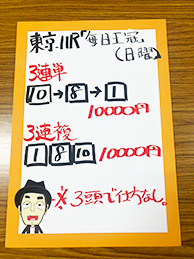 東京11R「毎日王冠」
(日曜)
3連単
10→8→1
10000円
3連複
1 8 10 10000円
※3頭で仕方なし。